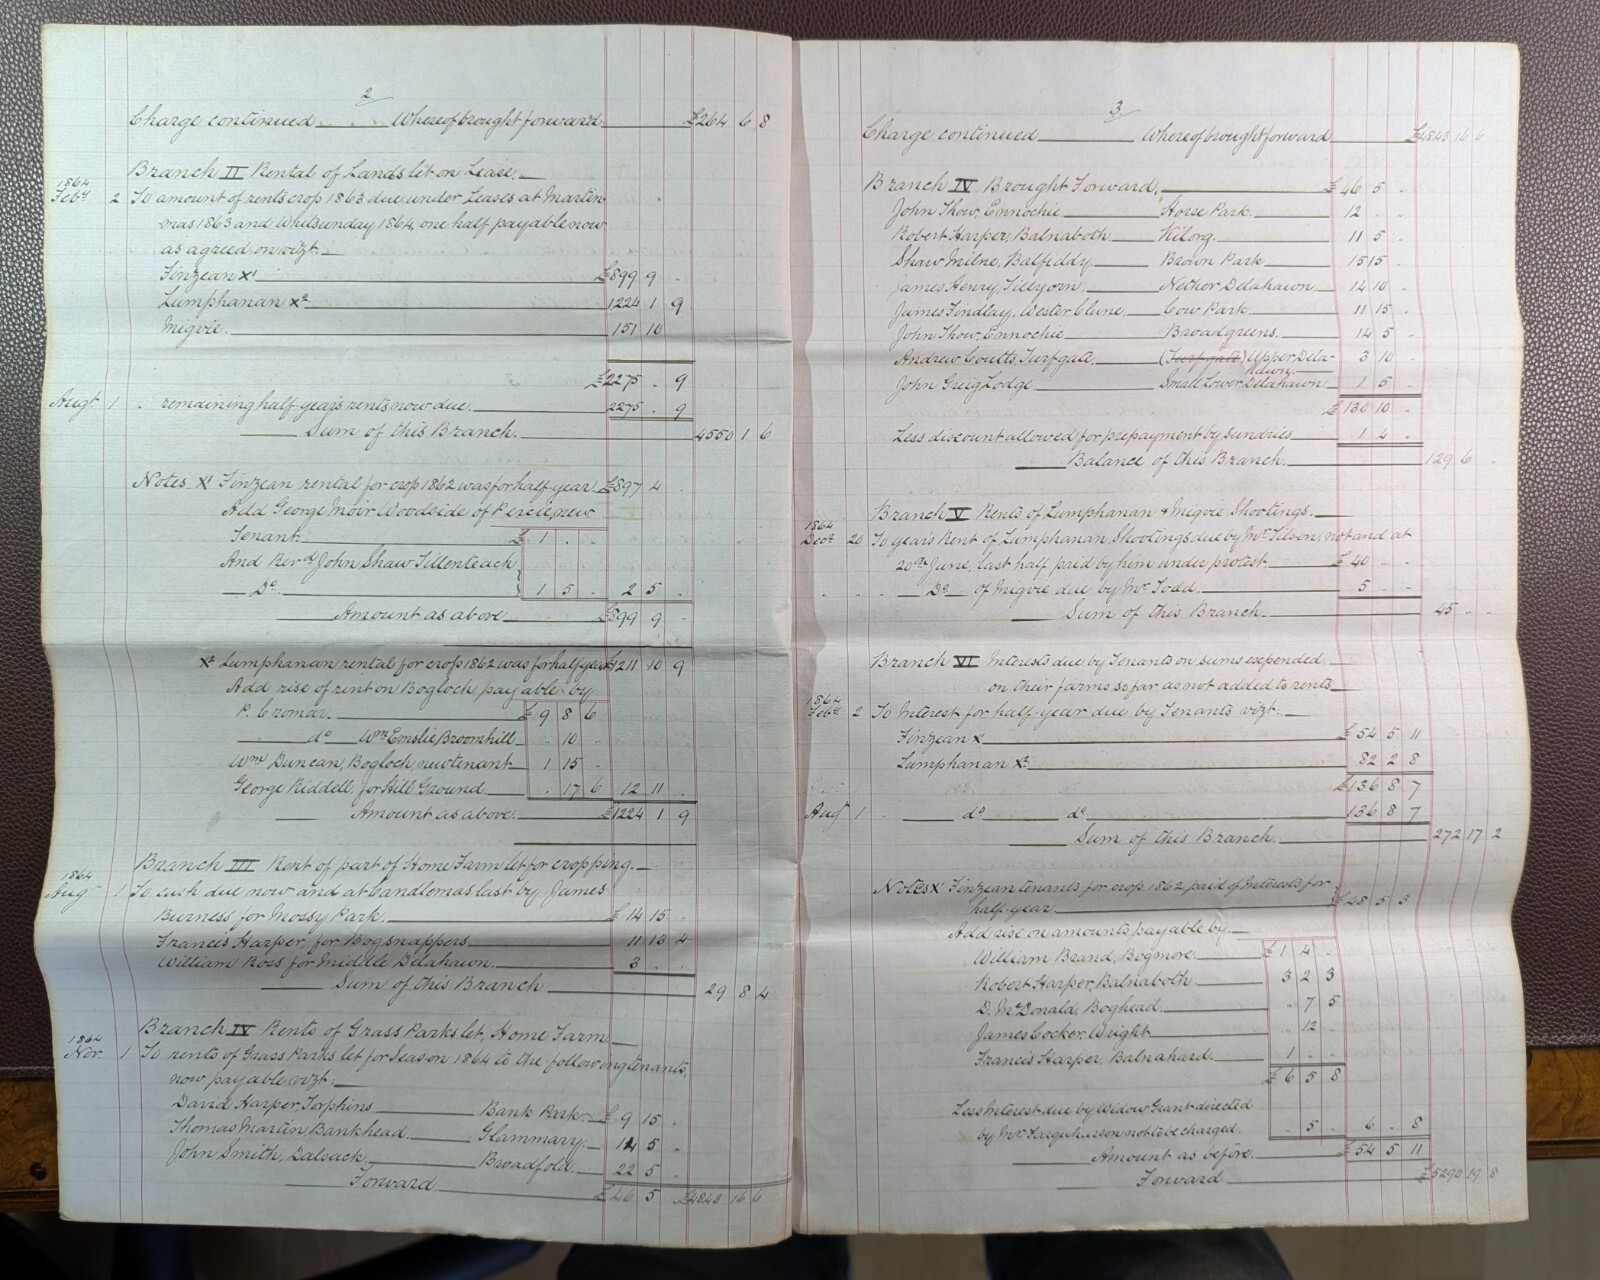 2
Charge continued Whereof brought forward £264 6 8
Branch II Rental of Lands let on Lease.
1864
Feby 2 To amount of rents crop 1863 due under Leases at Martin-
mas 1863 and Whitsunday 1864, one half payable now
as agreed on vizt.
Finzean x1 £899 9 .
Lumphanan x2 1224 1 9
Migvie. 151 10 .
£2275 . 9
Augt 1 . remaining half-year's rents now due. 2275 . 9
Sum of this Branch. 4550 1 6
Notes x1 Finzean rental for crop 1862 was for half year £897 4 .
Add George Moir Woodside of Percie, new
Tenant. £1 . .
And Revd John Shaw Tillenteach
Do. 1 5 . 2 5 .
Amount as above £899 9 .
x2 Lumphanan rental for crop 1862 was for half year £1211 10 9
Add rise of rent on Bogloch payable by
P. Cromar. £9 8 6
do Wm Emslie Broomhill . 10 .
Wm Duncan, Bogloch, new tenant 1 15 .
George Riddell, for Hill Ground . 17 6 12 11 .
Amount as above. £1224 1 9
Branch III Rent of part of Home Farm let for cropping.
1864
Augt 1 To cash due now and at Candlemas last by James
Burness for Mossy Park. £14 15 .
Francis Harper, for Bogsnappers 11 13 4
William Ross for Middle Delahawn. 3 . .
Sum of this Branch 29 8 4
Branch IV Rents of Grass Parks let, Home Farm
1864
Nov. 1 To rents of Grass Parks let for Season 1864 to the following tenants,
now payable vizt:
David Harper, Torphins Bank Park £9 15 .
Thomas Martin, Bankhead Glammary. 14 5 .
John Smith, Dalsack. Broadfold. 22 5 .
Forward £46 5 £4843 16 6
3
Charge continued Whereof brought forward £4843 16 6
Branch IV Brought Forward. £46 5 .
John Thow, Ennochie Horse Park. 12 . .
Robert Harper, Balnaboth Kilong. 11 5 .
Shaw Milne, Balfiddy. Brown Park 15 15 .
James Henry, Tillyorn. Nether Delahawn. 14 10 .
James Findlay, Wester Clune. Cow Park. 11 15 .
John Thow, Ennochie Broadgreens. 14 5 .
Andrew Coutts, Turfgate. (Turfgate) Upper Dela- 3 10 .
hawn.
John Greig Lodge Small Lower Delahawn 1 5 .
£130 10 .
Less discount allowed for prepayment by sundries 1 4 .
Balance of this Branch. 129 6 .
Branch V Rents of Lumphanan & Migvie Shootings.
1864
Decr 20 To year's Rent of Lumphanan Shootings due by Mr Tilson, now and at
20th June, last half paid by him under protest £40 . .
. . Do of Migvie due by Mr Todd. 5 . .
Sum of this Branch 45 . .
Branch VI Interests due by Tenants on sums expended
on their farms so far as not added to rents
1864
Feby 2 To Interest for half-year due by Tenants vizt.
Finzean x £54 5 11
Lumphanan x2 82 2 8
£136 8 7
Augt 1 . do do 136 8 7
Sum of this Branch 272 17 2
Notes x1 Finzean tenants for crop 1862 paid of Interests for
half-year. £48 5 3
Add rise on amounts payable by
William Brand, Bogmore. £1 4 .
Robert Harper, Balnaboth 3 2 3
D. McDonald, Boghead . 7 5
James Cocker, Wright . 12 .
Francis Harper, Balnahard. 1 . .
£6 5 8
Less Interest due by Widow Grant directed
by Mr Farquharson not to be charged . 5 . 6 . 8
Amount as before. £54 5 11
Forward £5290 19 8